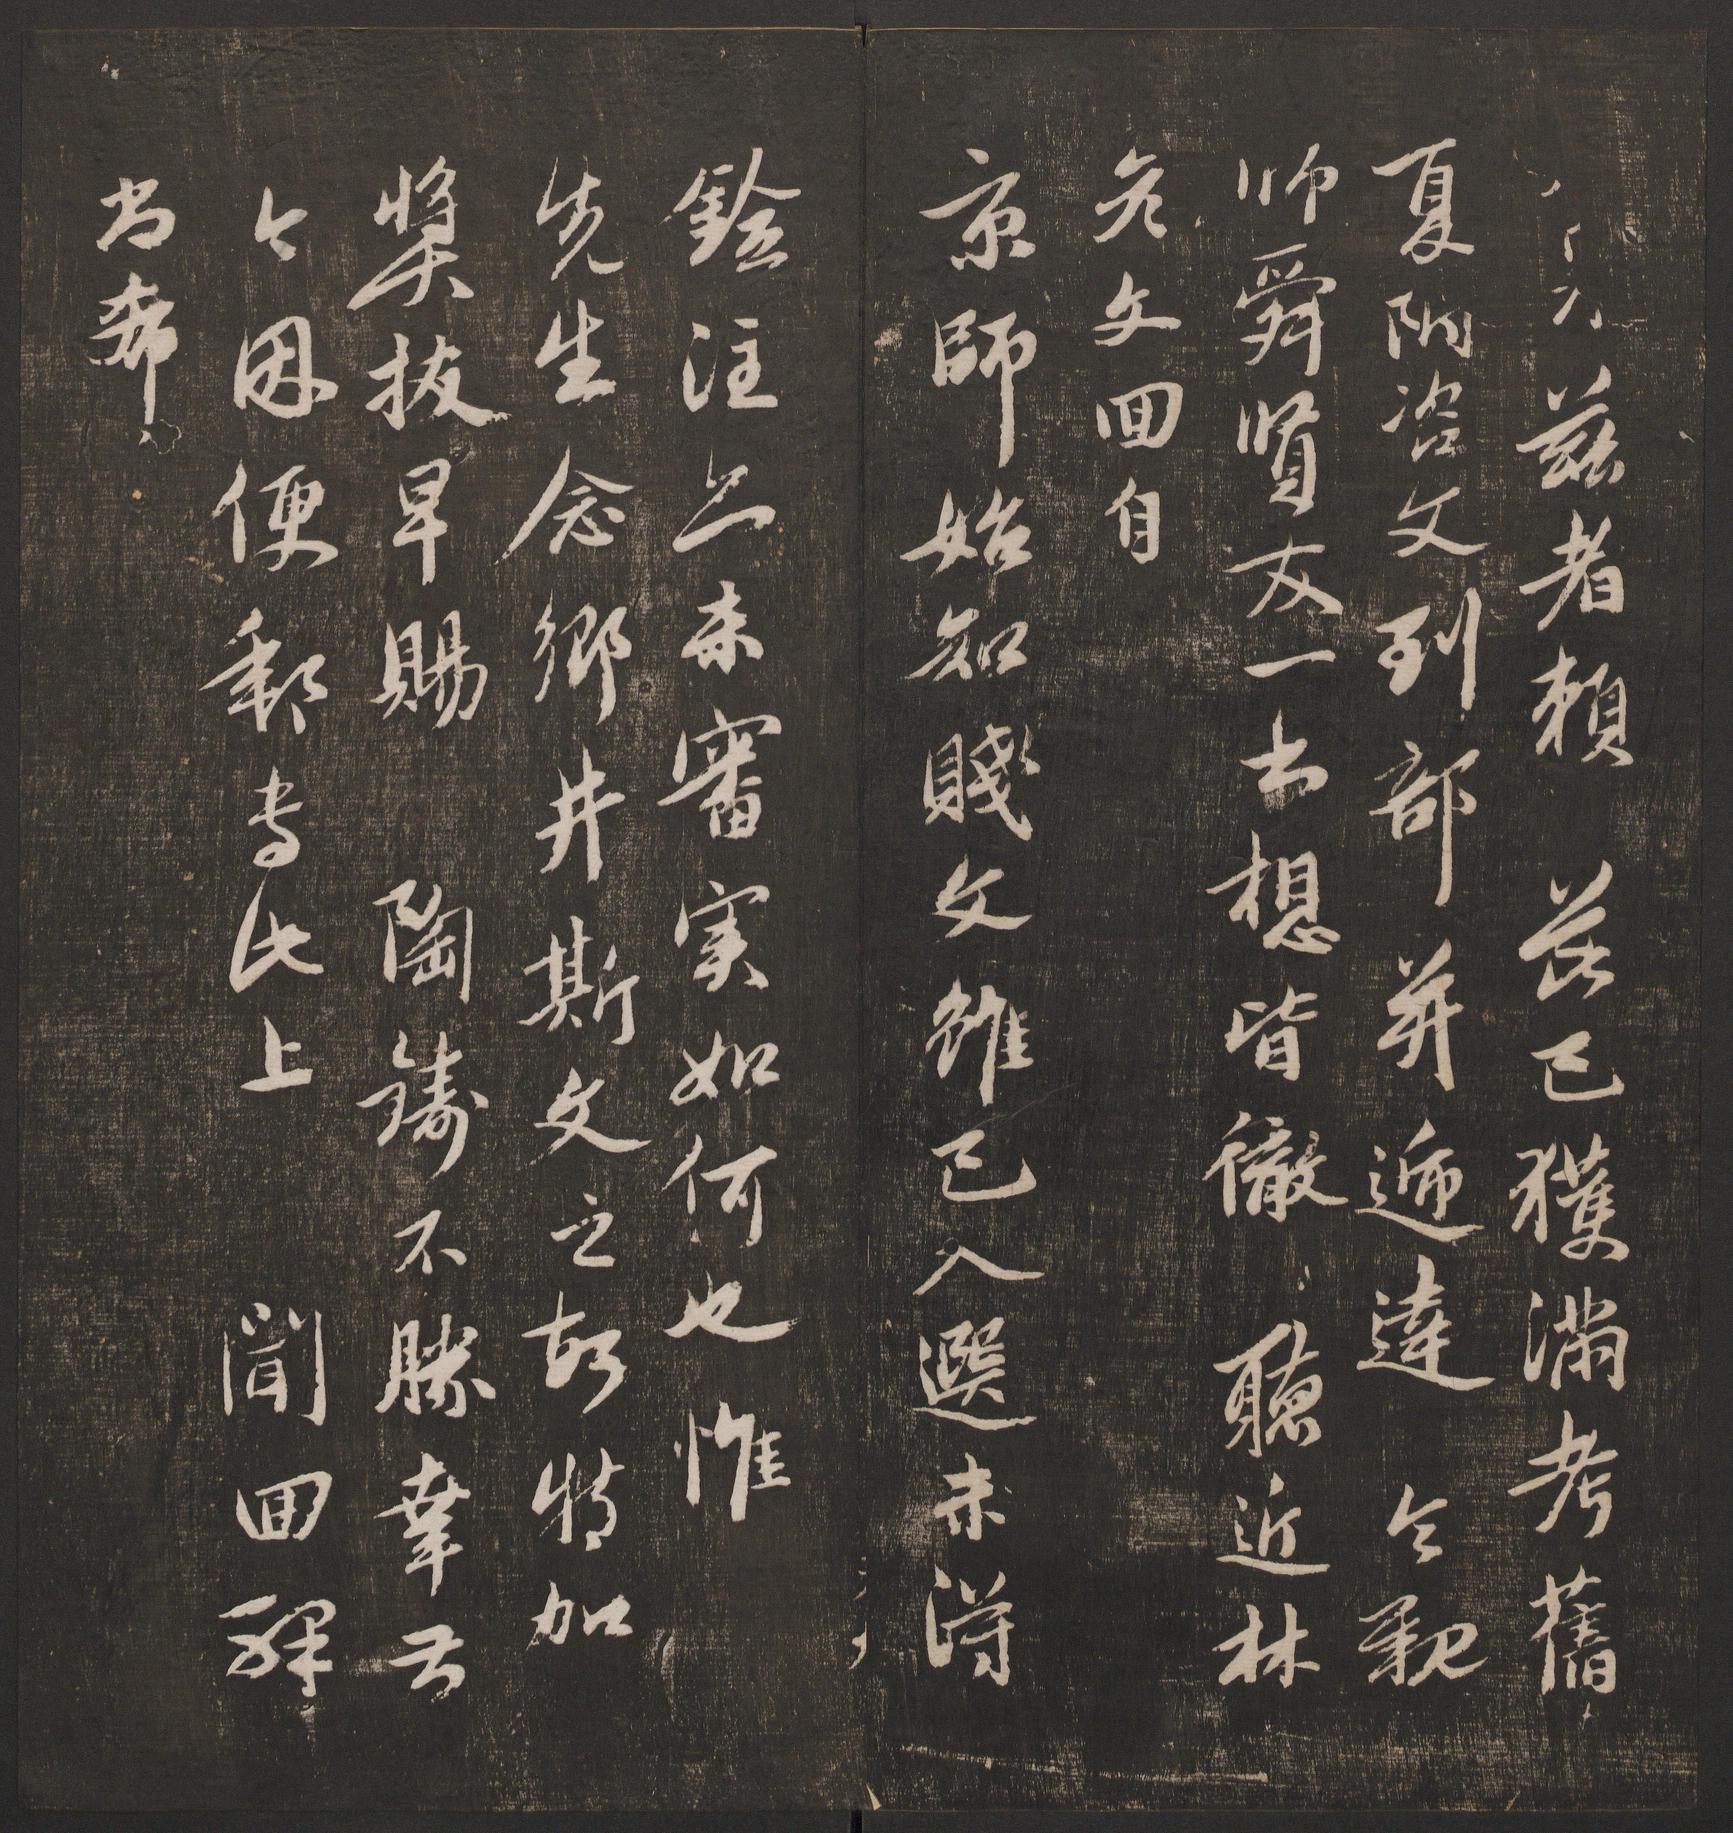 茲者賴 芘已獲滿考舊
夏附咨文到部并遞達 令親
帥舜賢友一書想皆徹 聽近林
彥文回自
京師始知賤文雖已入選未得
銓注亦未審實如何也惟
先生念鄉井斯文之故特加
奬拔早賜 陶鑄不勝幸甚
今因便郵專此上 聞回驛
書希